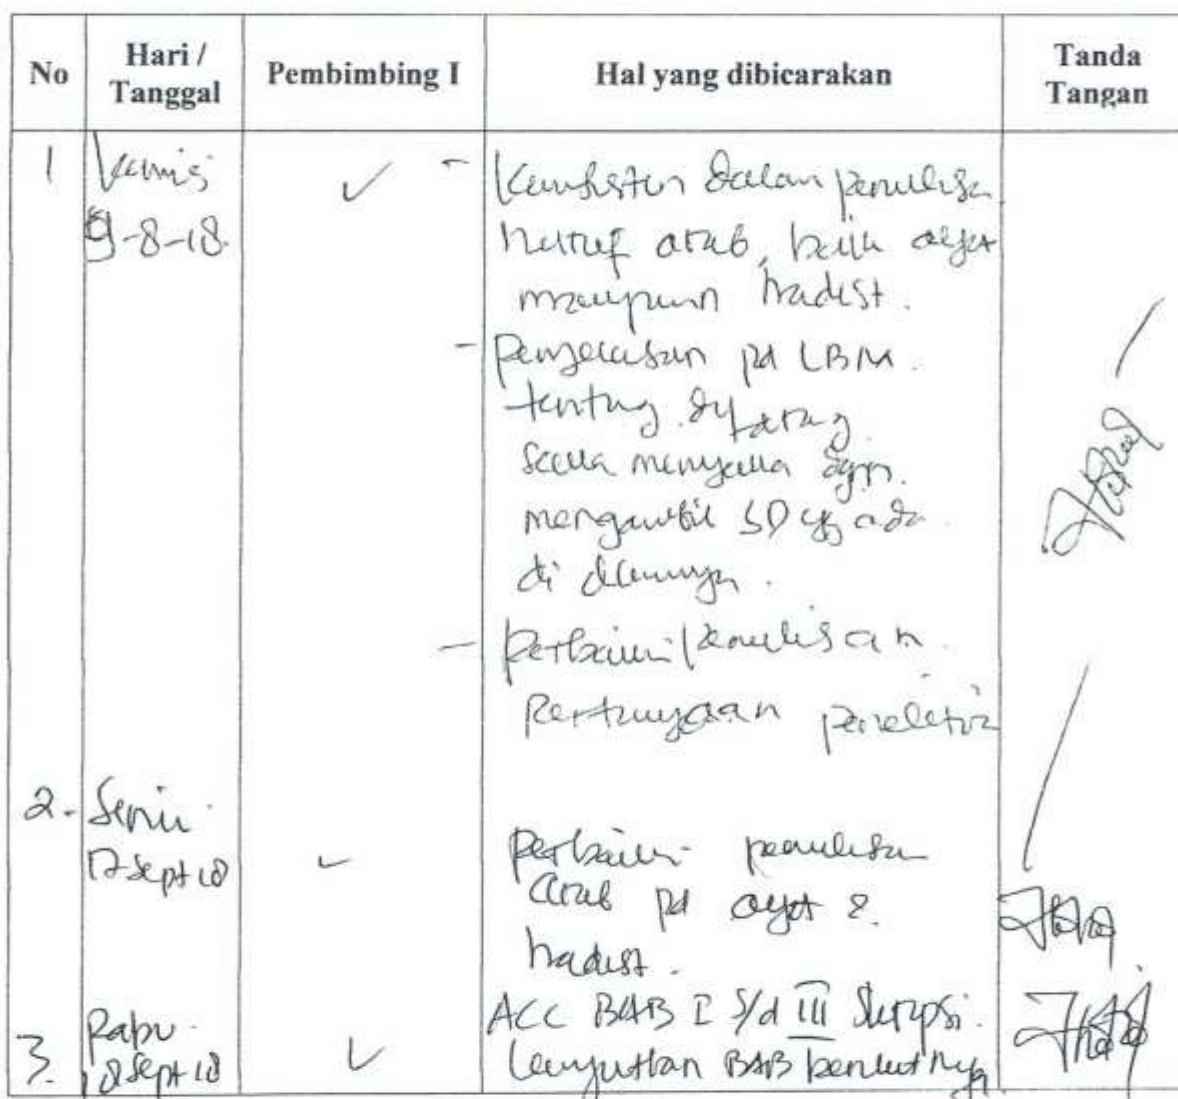 No
Hari /
Tanggal
Pembimbing I
Hal yang dibicarakan
Tanda
Tangan
1
Kamis
9-8-18.
✓
- Konsisten dalam penulisan
huruf arab, baik ayat
maupun hadist.
- Penjelasan pd LBM.
tentang
menyewa dgn.
mengambil SD yg ada
di dlmnya.
- Perbaiki penulisan.
Pertanyaan penelitian
2-
Senin
17 Sept 18
✓
Perbaiki penulisan
arab pd ayat &
hadist.
3.
Rabu
Sept 18
✓
ACC BAB I s/d III Skripsi.
Lanjutkan BAB berikutnya